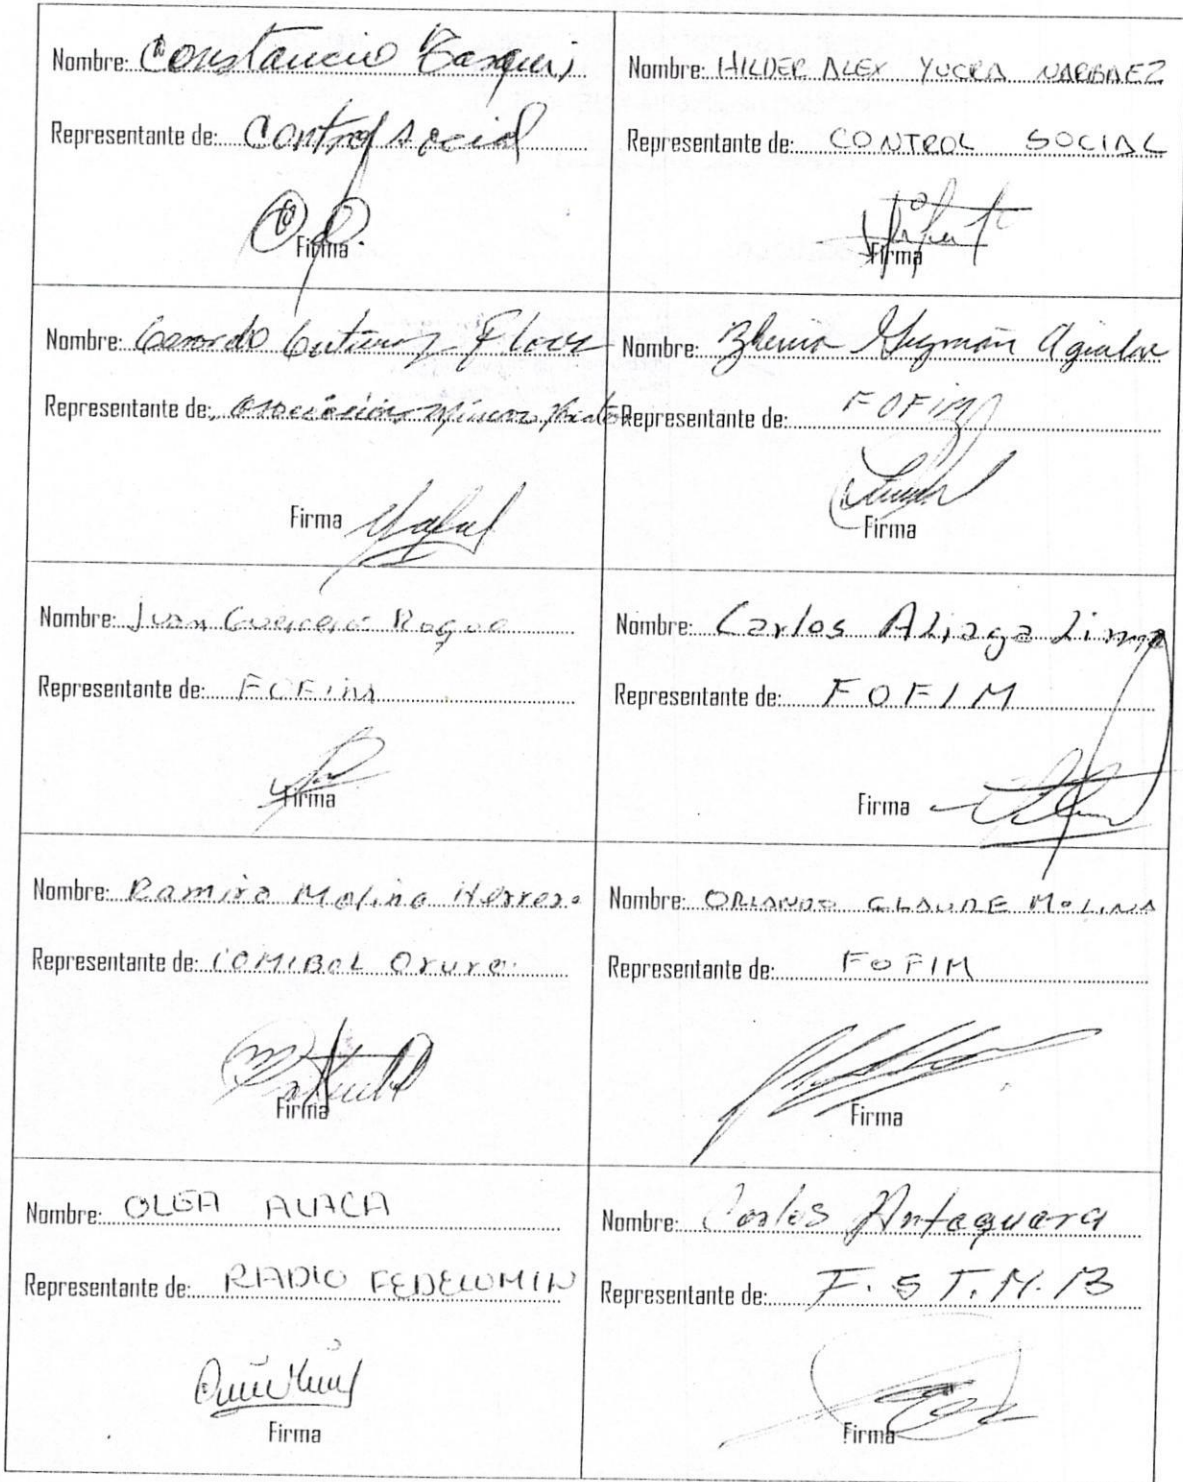 Nombre: Constancio Tarqui
Representante de: Control Social
Firma
Nombre: HILDER ALEX YUCRA NARBAEZ
Representante de: CONTROL SOCIAL
Firma
Nombre: Gerardo Gutierrez Flores
Representante de: asociación
Firma
Nombre: Guzmán Aguilar
Representante de: FOFIM
Firma
Nombre: Juan Guerrero Roque
Representante de: FOFIM
Firma
Nombre: Carlos Aliaga Lima
Representante de: FOFIM
Firma
Nombre: Ramiro Molina Herrera
Representante de: COMIBOL Oruro
Firma
Nombre: ORLANDO CLAURE MOLINA
Representante de: FOFIM
Firma
Nombre: OLGA
Representante de: RADIO FEDECOMIN
Firma
Nombre: Carlos Antequara
Representante de: F.S T.M.B
Firma